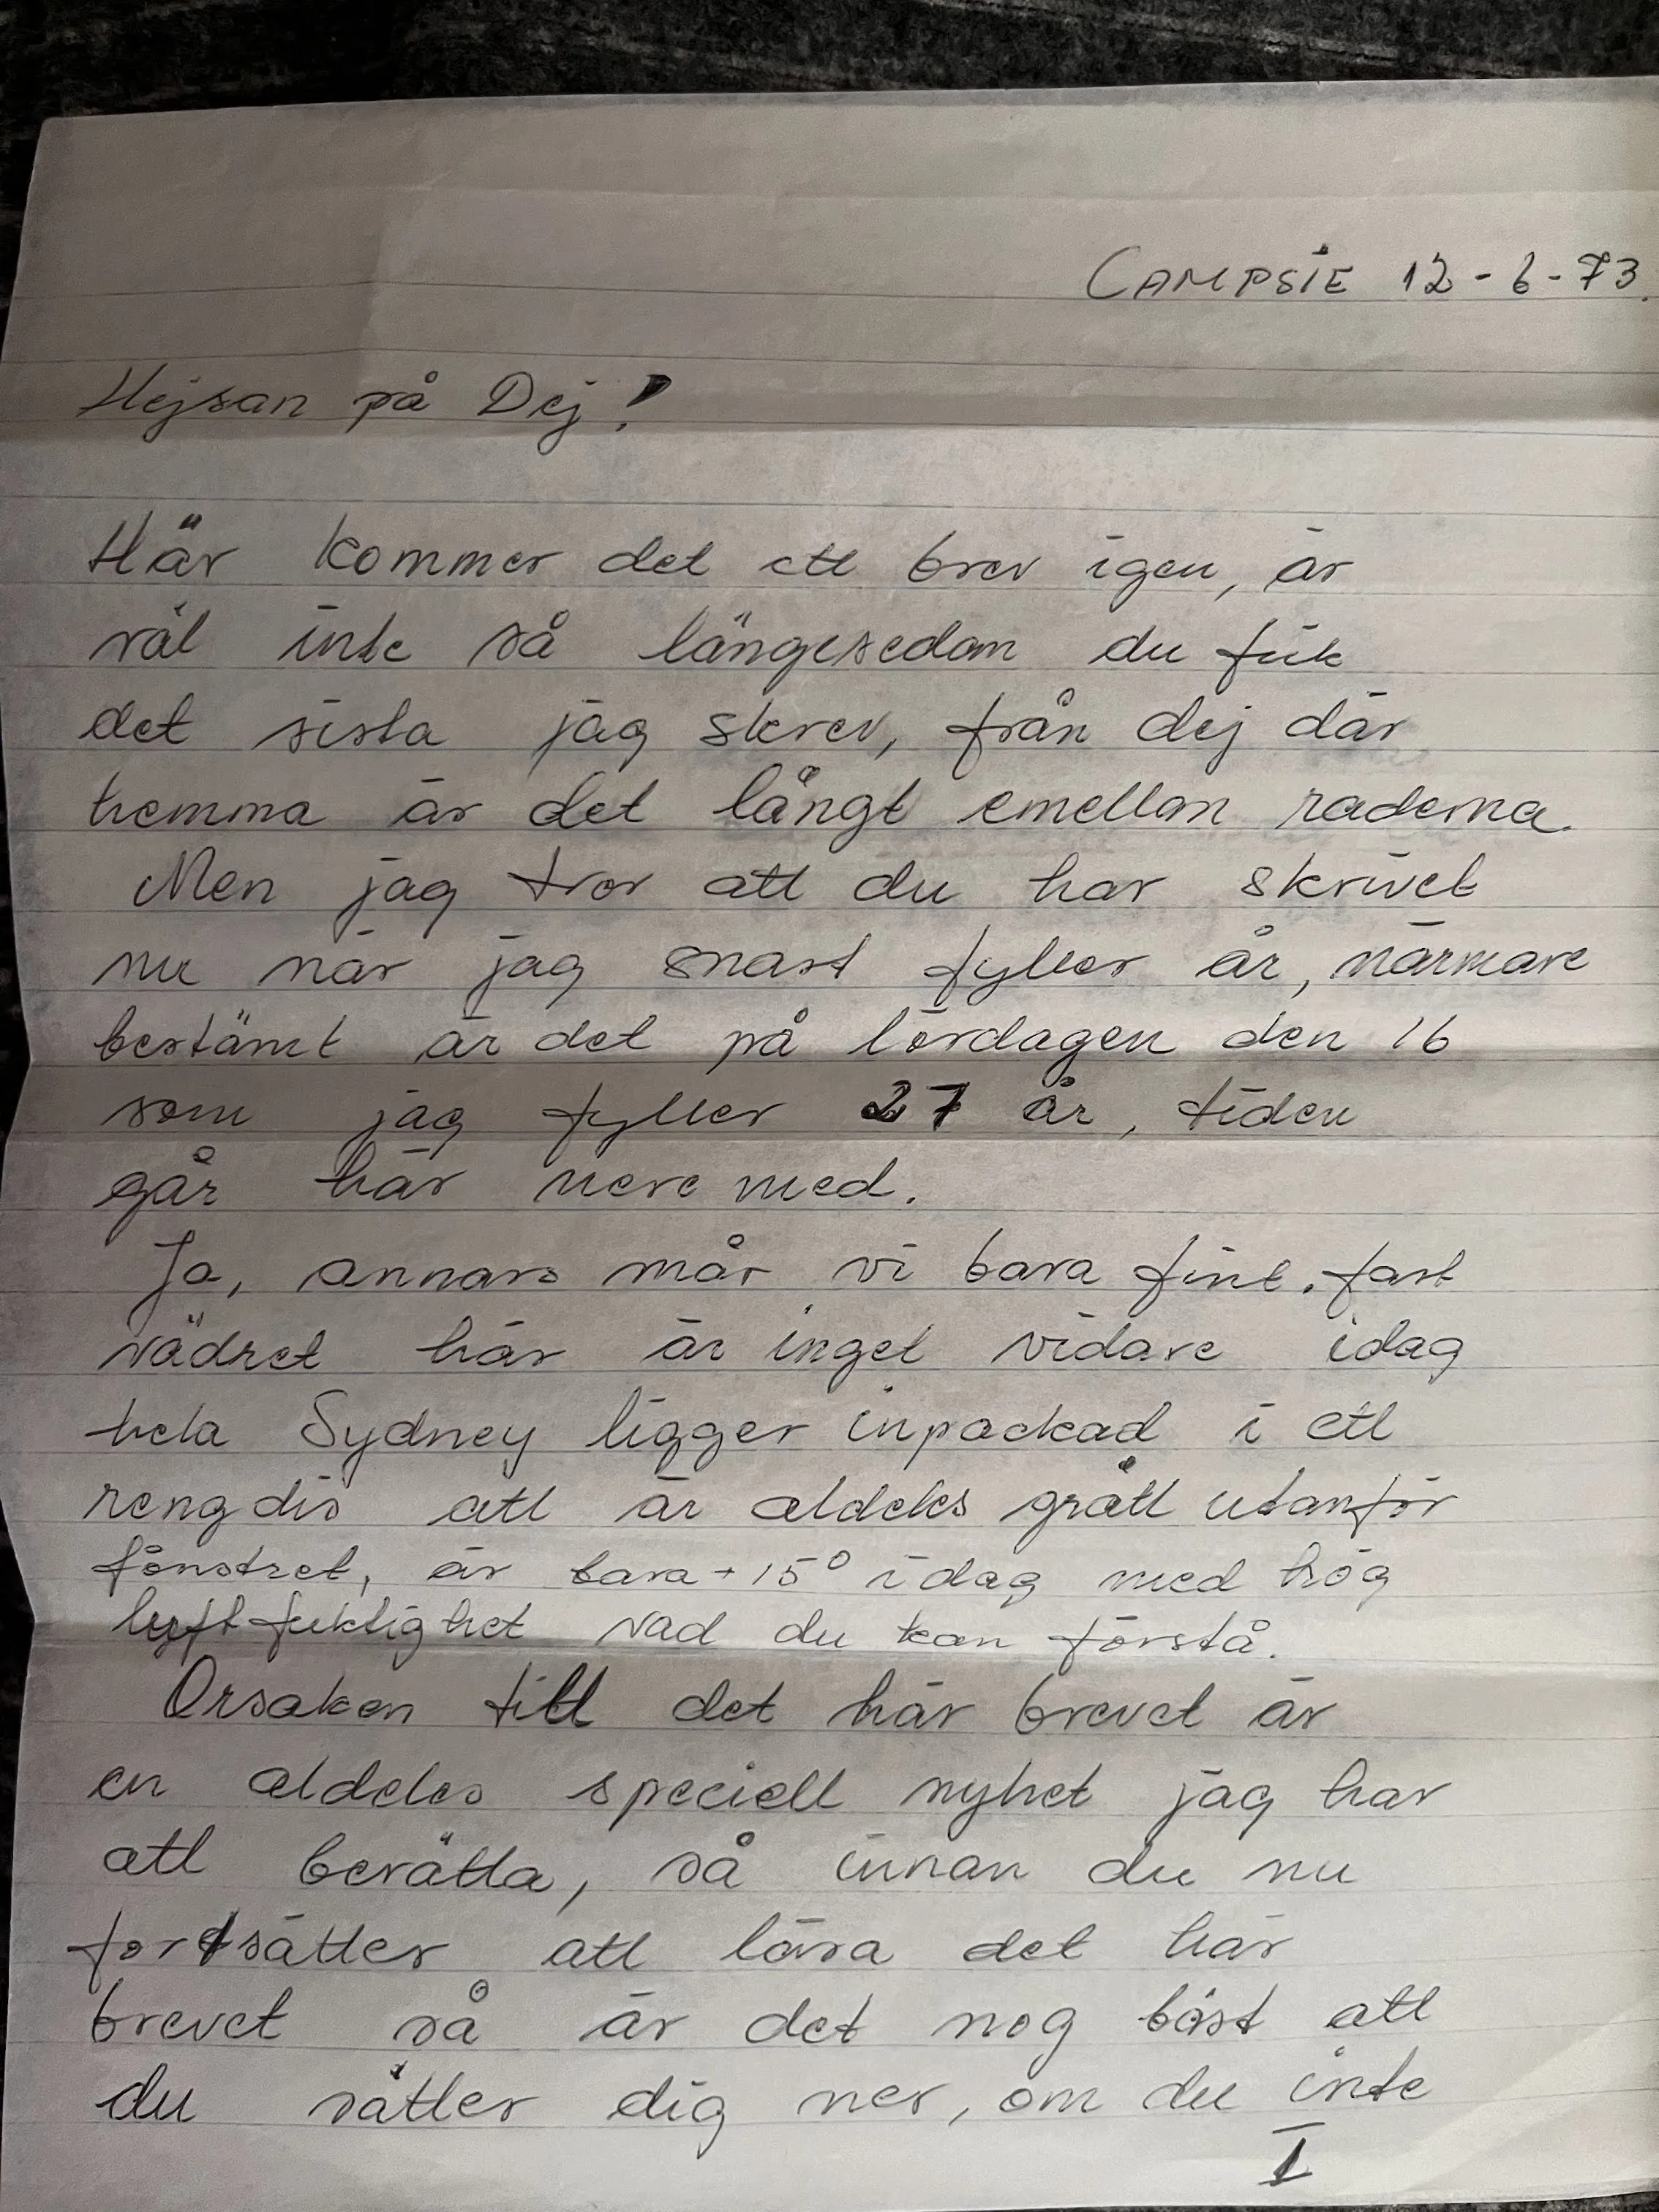 CAMPSIE 12-6-73.
Hejsan på Dej!
Här kommer det ett brev igen, är
väl inte så längesedan du fick
det sista jag skrev, från dej där
hemma är det långt emellan raderna.
Men jag tror att du har skrivet
nu när jag snart fyller år, närmare
bestämt är det på lördagen den 16
som jag fyller 27 år, tiden
går här nere med.
Ja, annars mår vi bara fint. fast
vädret här är inget vidare idag
hela Sydney ligger inpackad i ett
rengdis att är aldeles grått utanför
fönstret, är bara +15° idag med hög
luftfuktighet vad du kan förstå.
Orsaken till det här brevet är
en aldeles speciell nyhet jag har
att berätta, så innan du nu
fortsätter att läsa det här
brevet så är det nog bäst att
du sätter dig ner, om du inte
I